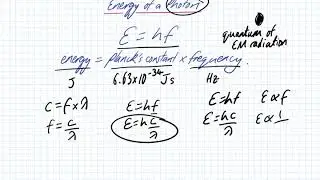 Energy of a Photon
E=hf
quantum of
EM radiation
energy = Planck's constant x frequency.
J 6.63x10^-34 Js Hz
c=fxλ E=hf E=hf E∝f
f=c/λ E=hc/λ E=hc/λ E∝1